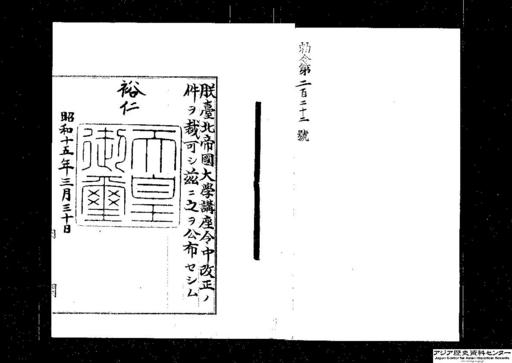 勅令第二百二十二號
朕臺北帝國大學講座令中改正ノ
件ヲ裁可シ茲ニ之ヲ公布セシム
裕仁
天皇
御璽
昭和十五年三月三十日
アジア歴史資料センター
Japan Center for Asian Historical Records